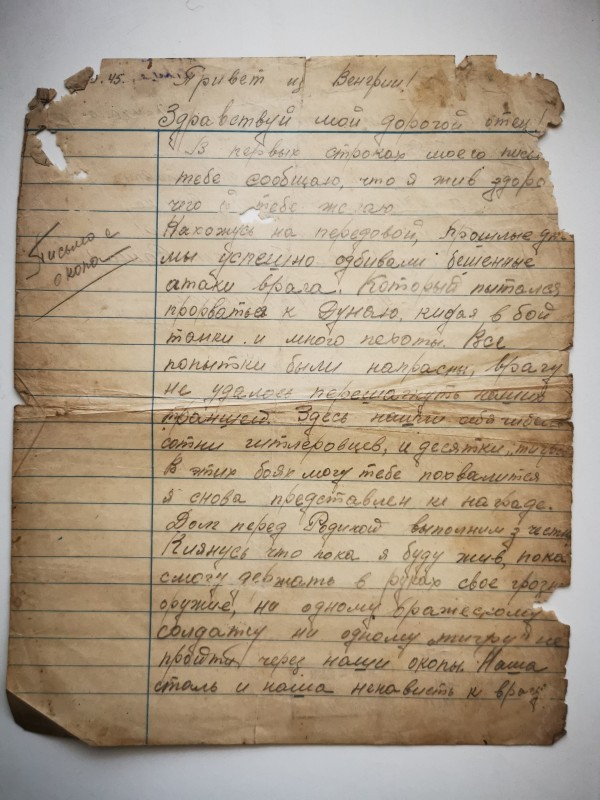 .45. Привет из Венгрии!
Здравствуй мой дорогой отец!
В первых строчах моего пись
тебе сообщаю, что я жив здоро
чего и тебе желаю
Нахожусь на передовой, прошлые дн
мы успешно одбивали бешенные
Письмо с
окопа
атаки врага. Который пытался
прорваться к Дунаю, кидая в бой
танки и много пехоты. Все
попытки были напрасны, врагу
не удалось перешагнуть наших
траншей. Здесь нашли себе
сотни гитлеровцев, и десятки „тигров
В этих боях могу тебе похвалится
я снова представлен к награде.
Долг перед Родиной выполним з честь
Клянусь что пока я буду жив, пока
смогу держать в руках свое грозн
оружие, ни одному вражескому
солдату ни одному „тигру" не
пройти через наши окопы. Наша
сталь и наша ненависть к враг